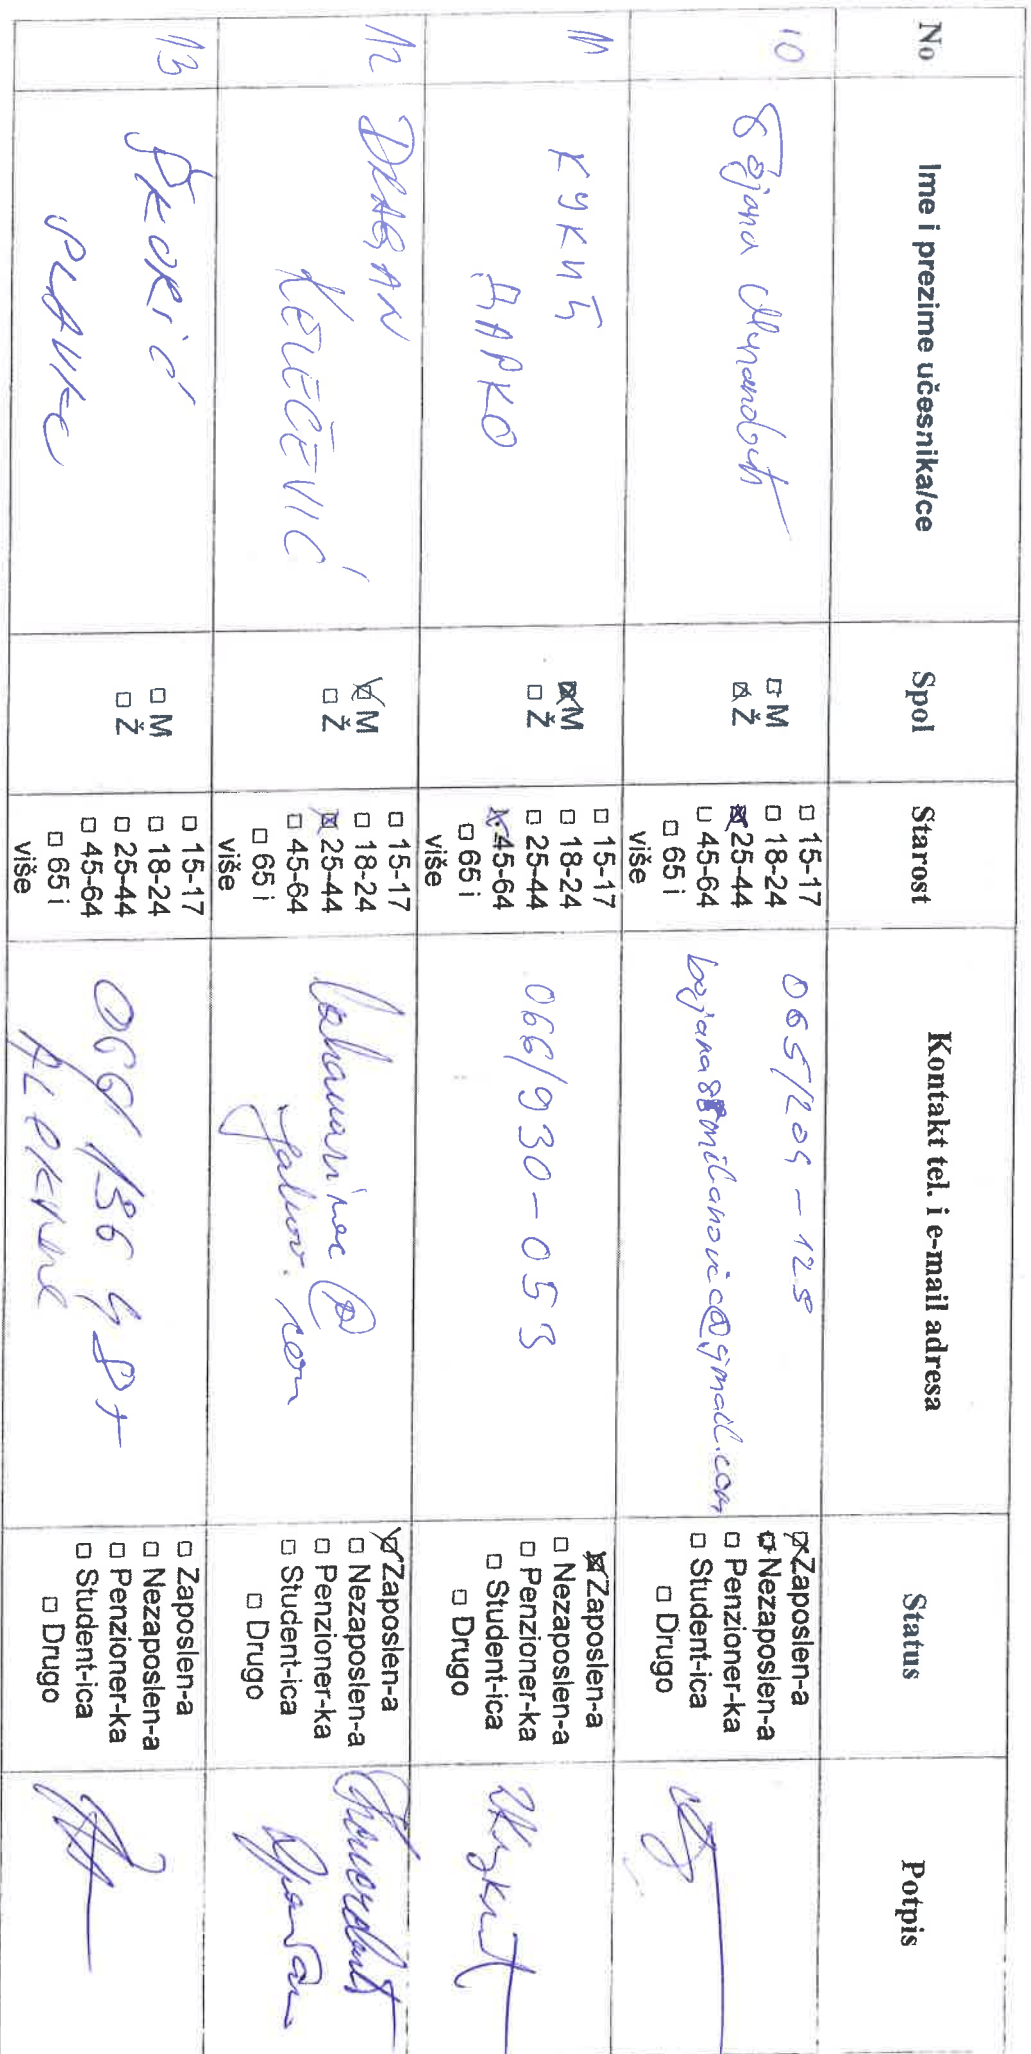 No Ime i prezime učesnika/ce Spol Starost Kontakt tel. i e-mail adresa Status Potpis
10
Бојана Милановић
□ M
☒ Ž
□ 15-17
□ 18-24
☒ 25-44
□ 45-64
□ 65 i
više
065/204-128
☒ Zaposlen-a
□ Nezaposlen-a
□ Penzioner-ka
□ Student-ica
□ Drugo
11
КУКИЋ
ДАРКО
☒ M
□ Ž
□ 15-17
□ 18-24
□ 25-44
☒ 45-64
□ 65 i
više
066/930-053
☒ Zaposlen-a
□ Nezaposlen-a
□ Penzioner-ka
□ Student-ica
□ Drugo
12
DRAGAN
☒ M
□ Ž
□ 15-17
□ 18-24
☒ 25-44
□ 45-64
□ 65 i
više
☒ Zaposlen-a
□ Nezaposlen-a
□ Penzioner-ka
□ Student-ica
□ Drugo
13
ŠKORIĆ
□ M
□ Ž
□ 15-17
□ 18-24
□ 25-44
□ 45-64
□ 65 i
više
□ Zaposlen-a
□ Nezaposlen-a
□ Penzioner-ka
□ Student-ica
□ Drugo